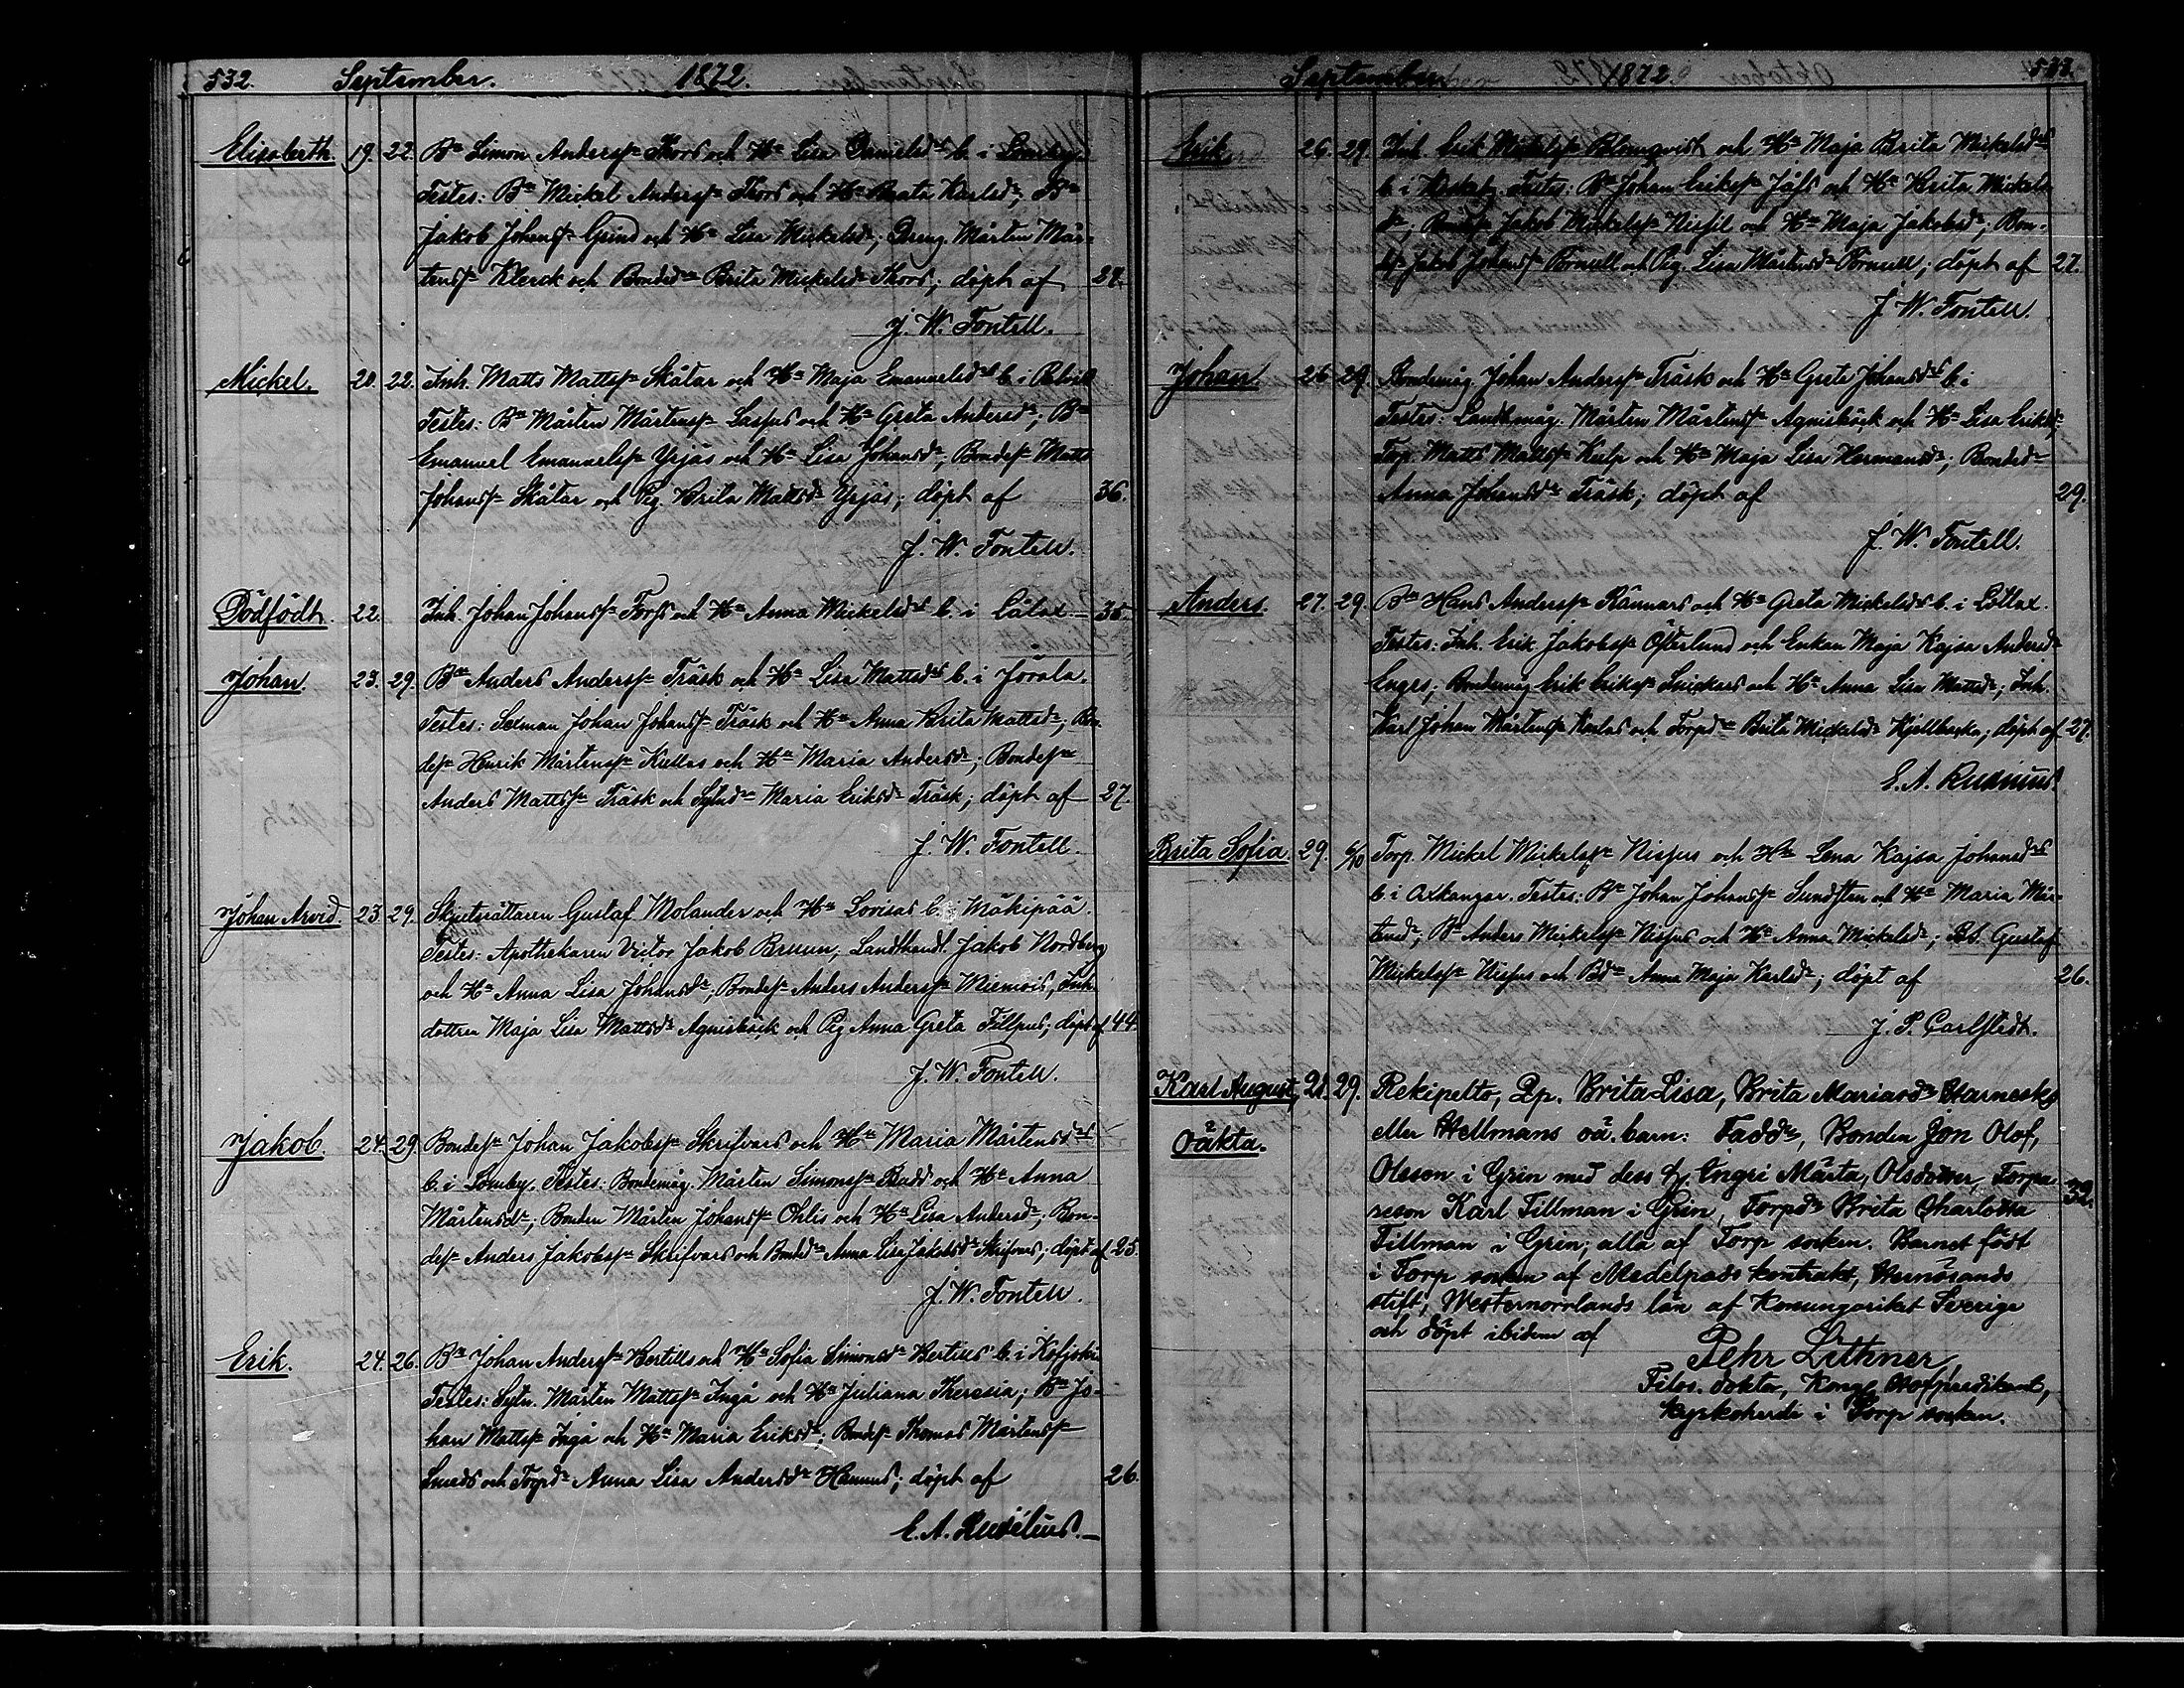 532. September. 1872.
Elisabeth 19. 22. Bn Simon Anderss. Thors och Hu Lisa Danielsd. b. i Lomby.
Testes: Bn Mickel Anderss. Thors och Hu Beata Karlsd.; Bn
Jakob Johanss. Grind och Hu Lisa Mickelsd.; Dreng. Mårten Mår-
tenss. Klerck och Bonded. Brita Mickelsd. Thors; döpt af
J. W. Fontell.
Mickel. 20. 22. Inh. Matts Mattss. Skåtar och Hu Maja Emanuelsd. b. i
Testes: Bn Mårten Mårtenss. Laspus och Hu Greta Andersd.; Bn
Emanuel Emanuelss. Yrjäs och Hu Lisa Johansd.; Bondes. Matts
Johanss. Skåtar och Pig. Brita Mattsd. Yrjäs; döpt af 36.
J. W. Fontell.
Dödfödt. 22. Inh. Johan Johanss. Torfs och Hu Anna Mickelsd. b. i Lålax. 35.
Johan. 23. 29. Bn Anders Anderss. Träsk och Hu Lisa Mattsd. b. i Jörala.
Testes: Sexman Johan Johanss. Träsk och Hu Anna Brita Mattsd.; Bon-
des. Henrik Mårtenss. Kiellas och Hu Maria Andersd.; Bondes.
Anders Mattss. Träsk och Sytnd. Maria Eriksd. Träsk; döpt af 27.
J. W. Fontell.
Johan Arvid. 23. 29. Skjuträttaren Gustaf Molander och Hu Lovisas b. i Mäkipää.
Testes: Apothekaren Victor Jakob Bruun, Landthandl. Jakob Nordberg
och Hu Anna Lisa Johansd.; Bondes. Anders Anderss. Miemois, Inh.
dottren Maja Lisa Mattsd. Agnisbäck och Pig Anna Greta Fillpus; döpt af 44.
J. W. Fontell.
Jakob. 24. 29. Bondes. Johan Jakobss. Skrifvars och Hu Maria Mårtensd.
b. i Lomby. Testes: Bondemåg. Mårten Simonss. Badd och Hu Anna
Mårtensd.; Bonden Mårten Johanss. Ohlis och Hu Lisa Andersd.; Bon-
des. Anders Jakobss. Skrifvars och Bonded. Anna Lisa Jakobsd. Skrifvars; döpt af 25.
J. W. Fontell.
Erik. 24. 26. Bn Johan Anderss. Bertills och Hu Sofia Simonsd. Bertills b. i Kofjoki.
Testes: Sytn. Mårten Mattss. Ingå och Hu Juliana Theresia; Bn Jo-
han Mattss. Ingå och Hu Maria Eriksd.; Bondes. Thomas Mårtenss.
Smeds och Torpd. Anna Lisa Andersd. Hannus; döpt af 26.
E. A. Rusélius.
September 1872. 533.
Erik 26. 29. Inh. Erik Mickelss. Blomqvist och Hu Maja Brita Mickelsd.
b. i Testes: Bn Johan Erikss. Jåfs och Hu Brita Mickels
d.; Bondes. Jakob Mickelss. Nisfil och Hu Maja Jakobsd.; Bon-
des. Jakob Johanss. Pörnull och Pig. Lisa Mårtensd. Pörnull; döpt af 27.
J. W. Fontell.
Johan. 26. 29. Bondemåg Johan Anderss. Träsk och Hu Greta Johansd. b. i
Testes: Landbmåg. Mårten Mårtenss. Agnisbäck och Hu Lisa Eriksd.
Torp. Matts Mattss. Kulp och Hu Maja Lisa Hermansd.; Bonded.
Anna Johansd. Träsk; döpt af 29.
J. W. Fontell.
Anders. 27. 29. Bn Hans Anderss. Rännars och Hu Greta Mickelsd. b. i Lottax.
Testes: Inh. Erik Jakobss. Österlund och Enkan Maja Kajsa Andersd.
Engrs; Bondemåg Erik Erikss. Snickars och Hu Anna Lisa Mattsd.; Inh.
Karl Johan Mårtenss. Karlas och Torpd. Brita Mickelsd. Kjellbacka; döpt af 27.
E. A. Rusélius.
Brita Sofia. 29. 6/10 Torp. Mickel Mickelss. Nisfus och Hu Lena Kajsa Johansd.
b. i Axkangar. Testes: Bn Johan Johanss. Sundsten och Hu Maria Mår-
tensd.; Bn Anders Mickelss. Nisfus och Hu Anna Mickelsd.; Bs. Gustaf
Mickelss. Nisfus och Bd. Anna Maja Karlsd.; döpt af 26.
J. P. Carlstedt.
Karl August, 28. 29. Rekipelto, Qp. Brita-Lisa, Brita Mariasd. Harnesk
Oäkta. eller Hellmans oä. barn: Faddr, Bonden Jon Olof,
Olsson i Grin med dess h. Engri Märta, Olsdotter, Torpa-
reson Karl Tillman i Grin, Torpd. Brita Charlotta 32.
Tillman i Grin; alla af Torp socken. Barnet födt
i Torp socken af Medelpads kontrakt, Hernösands
stift, Westernorrlands län af Konungariket Sverige
och döpt ibidem af
Pehr Lithner,
Filos. doktor, Kongl. Hofpredikant,
kyrkoherde i Torp socken.